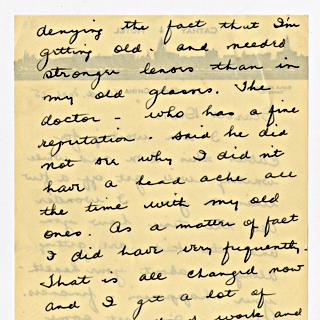 denying the fact that I'm
getting old. and needed
stronger lenses than in
my old glasses. The
doctor - who has a fine
reputation. said he did
not see why I did n't
have a head ache all
the time with my old
ones. As a matter of fact
I did have very frequently.
That is all changed now
and I get a lot of
work and